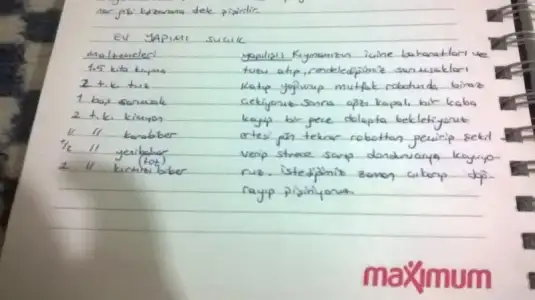 nar gibi kızarana dek pişirilir.
EV YAPIMI SUCUK
malzemeleri
1,5 kilo kıyma
2 t.k tuz
1 baş sarımsak
2 t.k. kimyon
" " karabiber
1/2 " yenibahar
(tatlı)
2 " kırmızı biber
yapılışı Kıymamızın içine baharatları ve
tuzu atıp, rendelediğimiz sarımsakları
katıp yoğurup mutfak robotunda biraz
çekiyoruz sonra ağzı kapalı bir kaba
koyup bir gece dolapta bekletiyoruz
ertesi gün tekrar robottan geçirip şekil
verip streçe sarıp dondurucuya koyuyo-
ruz. istediğimiz zaman çıkarıp doğ-
rayıp pişiriyoruz.
maximum